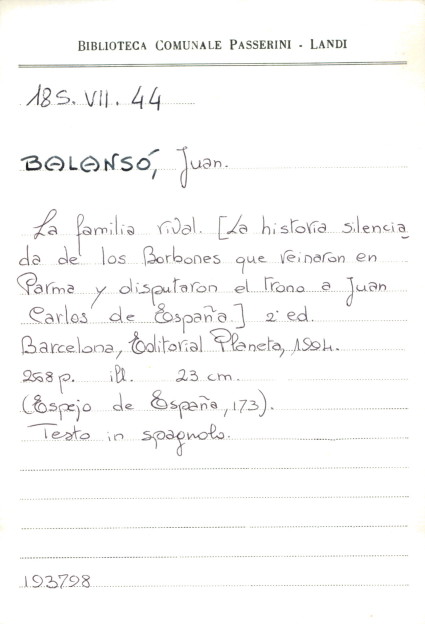 BIBLIOTECA COMUNALE PASSERINI - LANDI
18S. VII. 44
BALANSÓ, Juan.
La familia rival. [La historia silencia
da de los Borbones que reinaron en
Parma y disputaron el trono a Juan
Carlos de España.] 2ª ed.
Barcelona, Editorial Planeta, 1994.
268 p. ill. 23 cm.
(Espejo de España, 173).
Testo in spagnolo.
193798